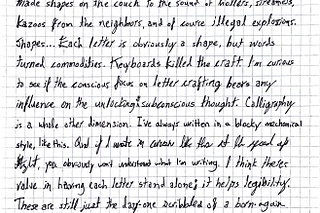 made shapes on the couch to the sound of hollers, streamers,
Kazoos from the neighbors, and of course illegal explosions.
Shapes... Each letter is obviously a shape, but words
turned commodities. Keyboards killed the craft. I'm curious
to see if the conscious focus on letter crafting bears any
influence on the unlocking subconscious thought. Calligraphy
is a whole other dimension. I've always written in a blocky mechanical
style, like this. And if I wrote in cursive like this at the speed of
light, you obviously won't understand what I'm writing. I think there's
value in having each letter stand alone; it helps legibility.
These are still just the day-one scribbles of a born-again